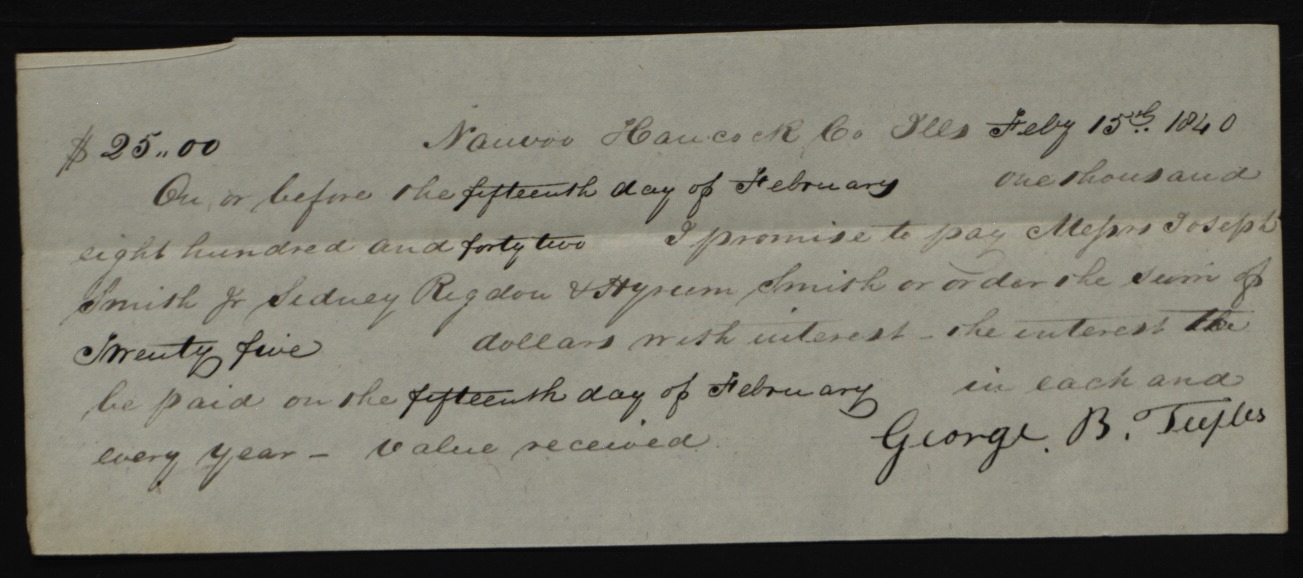 $25,,00 Nauvoo Hancock Co Ills Feby 15th. 1840
On or before the fifteenth day of February one thousand
eight hundred and forty two I promise to pay Messrs Joseph
Smith Jr Sidney Rigdon & Hyrum Smith or order the sum of
Twenty five dollars with interest - the interest the
be paid on the fifteenth day of February in each and
every year - value received.
George. B.